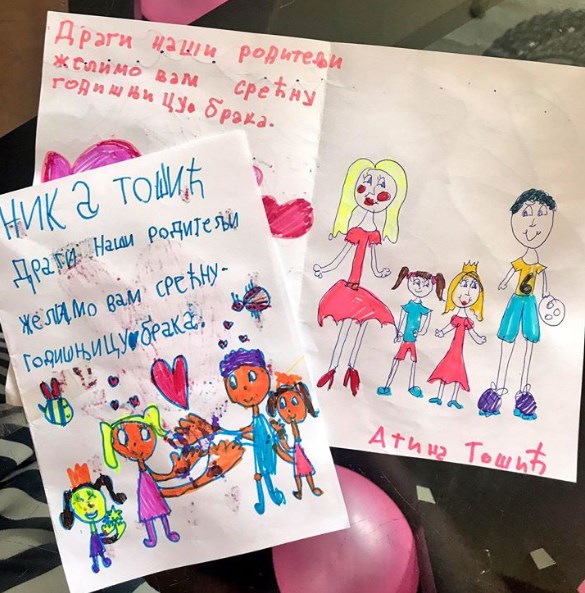 Драги наши родитељи
желимо вам срећну
годишњи ЦУ. брака.
НИКА ТОШИЋ
Драги наши родитељи
желимо вам срећну-
годишњи ЦУ. брака.
6
Атина Тошић